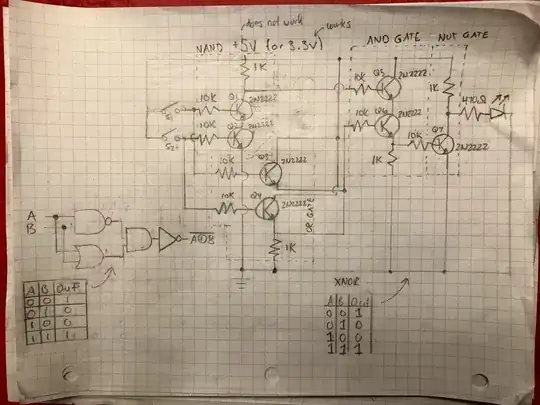 does not work
works
NAND +5V (or 3.3v)
AND GATE
NOT GATE
1K
10K
Q5
2N2222
1K
470Ω
S1
10K
Q1
2N2222
S2
10K
Q2
2N2222
10K
Q6
2N2222
10K
Q7
2N2222
1K
10K
Q3
2N2222
10K
Q4
2N2222
OR GATE
1K
A
B
A⊕B
XNOR
A B OUT
0 0 1
0 1 0
1 0 0
1 1 1
A B Out
0 0 1
0 1 0
1 0 0
1 1 1